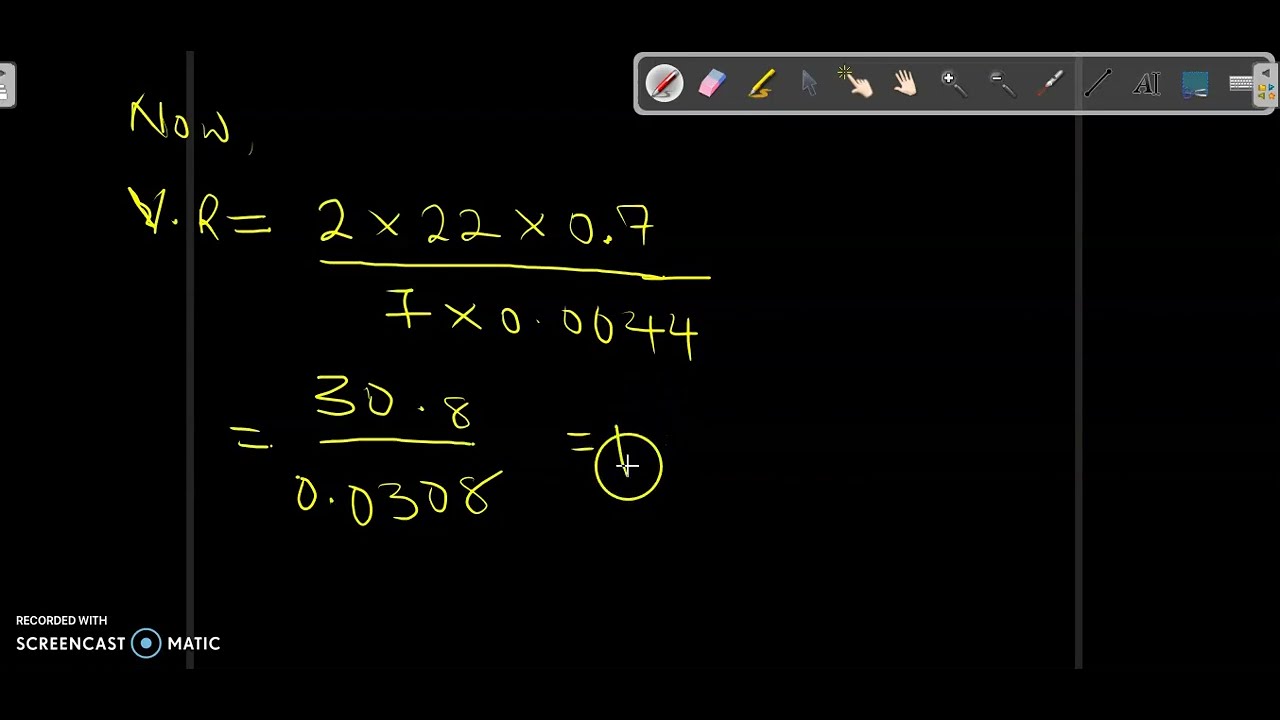 Now,
V.R = 2 × 22 × 0.7
7 × 0.0044
= 30.8
0.0308
= 1
AI
RECORDED WITH
SCREENCAST MATIC